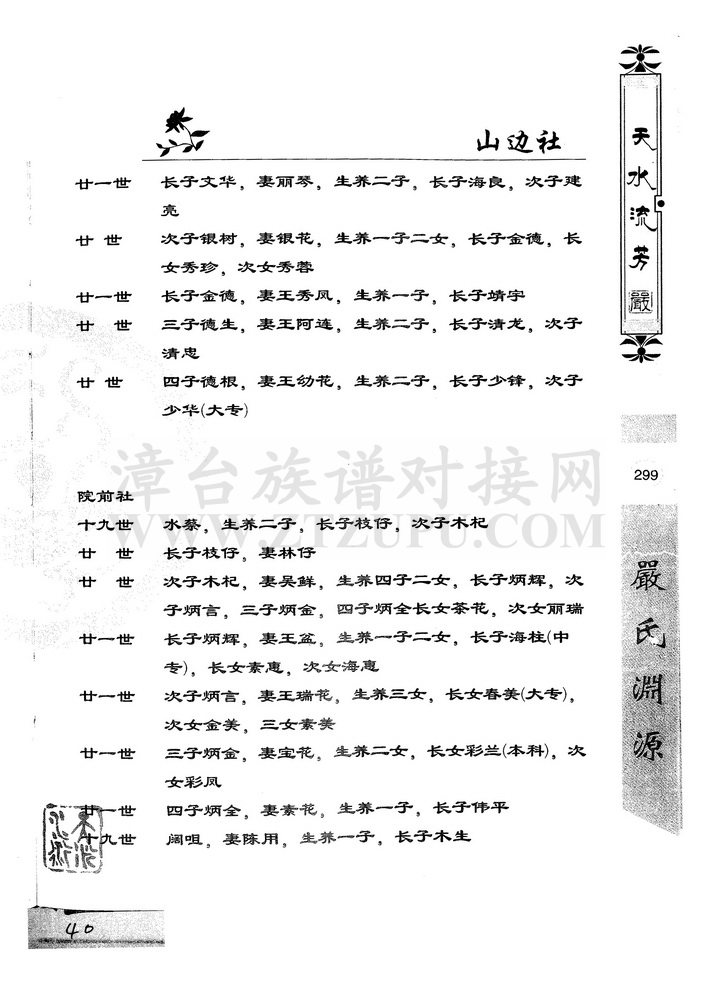 山边社
廿一世 长子文华，妻丽琴，生养二子，长子海良，次子建
亮
廿 世 次子银树，妻银花，生养一子二女，长子金德，长
女秀珍，次女秀蓉
廿一世 长子金德，妻王秀凤，生养一子，长子靖宇
廿 世 三子德生，妻王阿连，生养二子，长子清龙，次子
清忠
廿 世 四子德根，妻王幼花，生养二子，长子少锋，次子
少华(大专)
院前社
十九世 水蔡，生养二子，长子枝仔，次子木杞
廿 世 长子枝仔，妻林仔
廿 世 次子木杞，妻吴鲜，生养四子二女，长子炳辉，次
子炳言，三子炳金，四子炳全长女茶花，次女丽瑞
廿一世 长子炳辉，妻王盆，生养一子二女，长子海柱(中
专)，长女素惠，次女海惠
廿一世 次子炳言，妻王瑞花，生养三女，长女春美(大专)，
次女金美，三女素美
廿一世 三子炳金，妻宝花，生养二女，长女彩兰(本科)，次
女彩凤
廿一世 四子炳全，妻素花，生养一子，长子伟平
十九世 阔咀，妻陈用，生养一子，长子木生
天水流芳
嚴
299
嚴氏渊源
40
漳台族谱对接网
WWW.ZTZUPU.COM